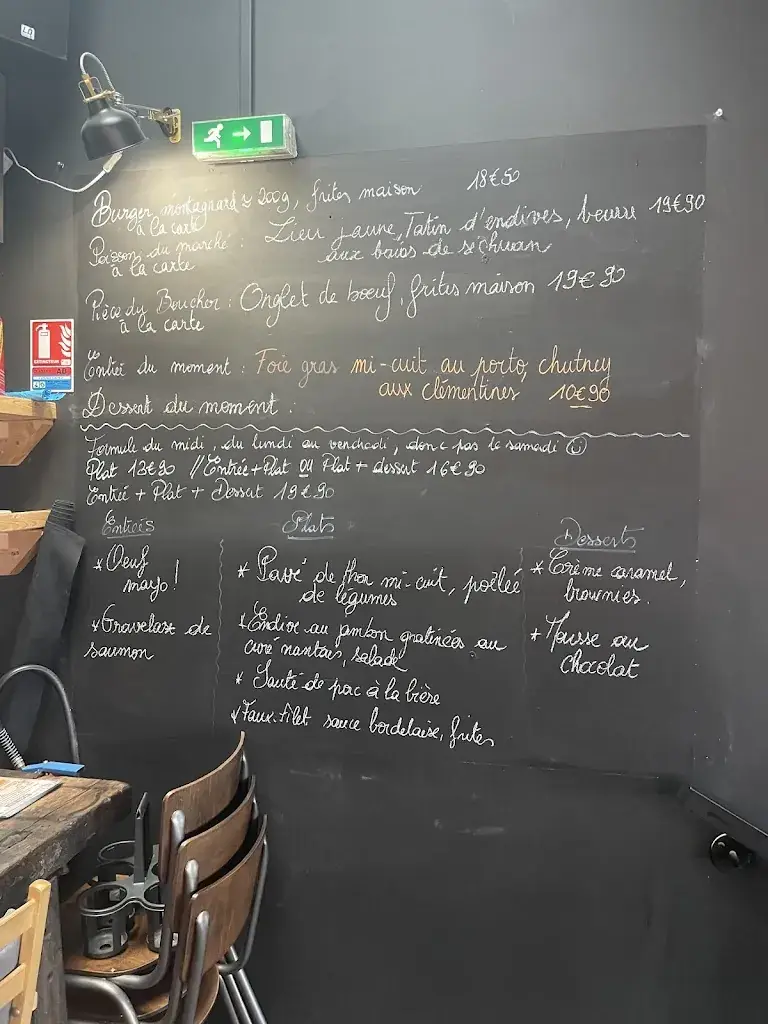 Burger montagnard ≈ 200g, frites maison 18€50
à la carte
Poisson du marché : Lieu jaune, Tatin d'endives, beurre 19€90
à la carte aux baies de séchuan
Pièce du Boucher : Onglet de bœuf, frites maison 19€90
à la carte
Entrée du moment : Foie gras mi-cuit au porto, chutney
aux clémentines 10€90
Dessert du moment :
Formule du midi, du lundi au vendredi, donc pas le samedi ☺
Plat 13€90 // Entrée + Plat ou Plat + dessert 16€90
Entrée + Plat + Dessert 19€90
Entrées
* Oeuf
mayo !
* Gravelax de
saumon
Plats
* Pavé de thon mi-cuit, poêlée
de légumes
* Endive au jambon gratinées au
curé nantais, salade
* Sauté de porc à la bière
* Faux-filet sauce bordelaise, frites
Desserts
* Crème caramel,
brownies.
* Mousse au
chocolat